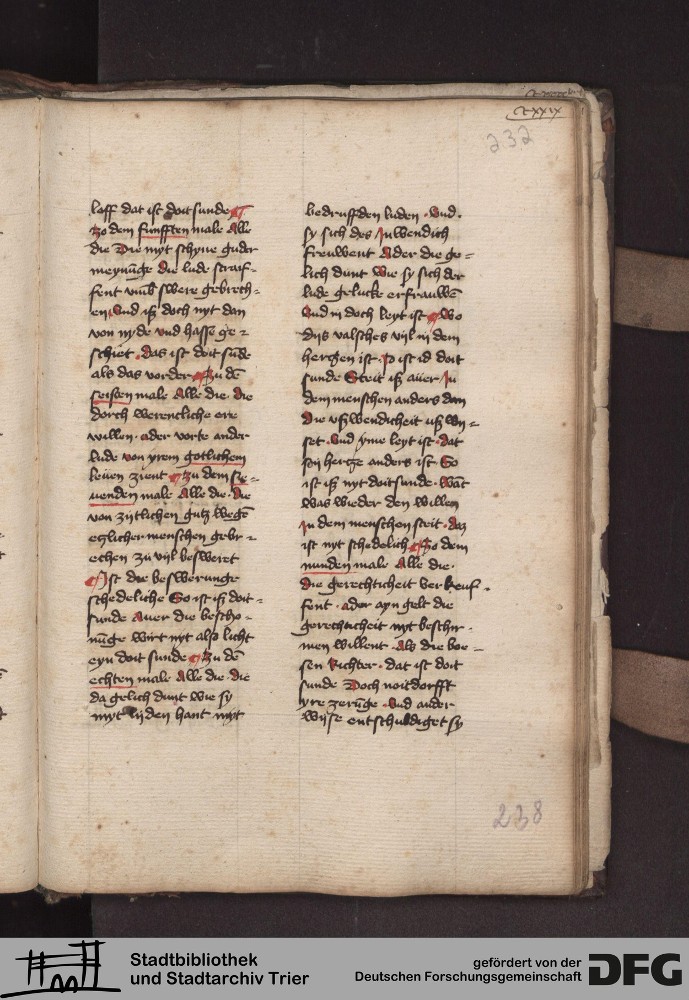 cxxix
232
laff dat ist doit sunde
zo dem funfften male Alle
die Die myt schyne guder
meynũge die lude straif-
fent vmb swere gebrech-
en Vnd iß doch nyt dan
von nyde vnd hasse ge-
schiet . das ist doit sũde
als das vorder Zu dẽ
seisten male Alle die . die
dorch werentliche ere
willen . ader vorte ander
lude von yrem gotlichem
leuen zient Zu dem sie-
uenden male Alle die . Die
von zijtlichen gutz wegẽ
etzlicher menschen gebr-
echen zu vijl besweret
Ist die beswerunge
schedeliche So ist iß doit-
sunde Auer die bescho-
nũge wirt nyt alsz licht
eyn doit sunde Zu dẽ
echten male Alle die . die
da gelich dunt wie sy
myt lijden hant myt
bedrufften luden . Vnd .
sy sich des Inwendich
freuwent Ader die ge-
lich dunt wie sy sich der
lude gelucke erfrauwẽ
Vnd in doch leyt ist Wo
dijs valsches vijl in dem
hertzen ist . So ist id doit
sunde Streit iß auer In
dem menschen anders dan
Die vßwendicheit vßwi-
set . Vnd yme leyt ist . dat
sin hertze anders ist So
ist iß nyt doit sunde . wãt
was wieder den willen
In dem menschen streit . daz
ist nyt schedelich Zo dem
nunden male Alle die .
Die gerechticheit verkeuf-
fent . ader ayn gelt die
gerechticheit nyt beschir-
men willent . Als die boe-
sen Richter . dat ist doit
sunde Doch noitdorfft
yre zerũge . Vnd ander
wijse entschuldiget sy
238
Stadtbibliothek
und Stadtarchiv Trier
gefördert von der
Deutschen Forschungsgemeinschaft
DFG